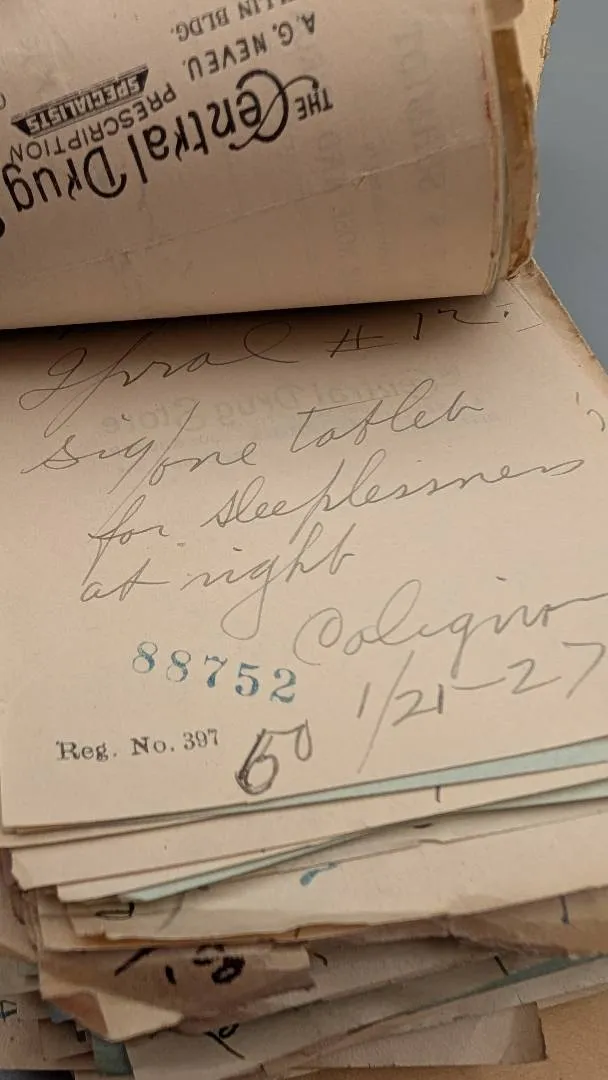 THE Central Drug
PRESCRIPTION
SPECIALISTS
A.G. NEVEU.
LLIN BLDG.
Ipral # 12.
Sig/one tablet
for sleeplessness
at night
88752
1/21-27
Reg. No. 397
60